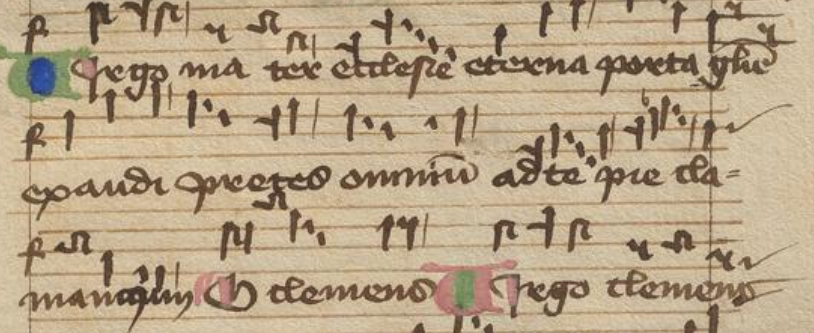 VIrgo ma ter ecclesie eterna porta gl̄ie
exaudi preces omniū ad te pie cla=
mancium O clemens VIrgo clemens